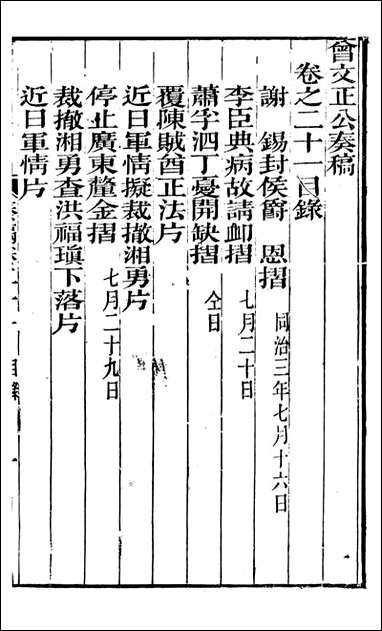 曾文正公奏稿
卷之二十一目錄
謝　錫封侯爵　恩摺　同治三年七月十六日
李臣典病故請卹摺　七月二十日
蕭孚泗丁憂開缺摺　仝日
覆陳賊酋正法片
近日軍情擬裁撤湘勇片
停止廣東釐金摺　七月二十九日
裁撤湘勇查洪福瑱下落片
近日軍情片